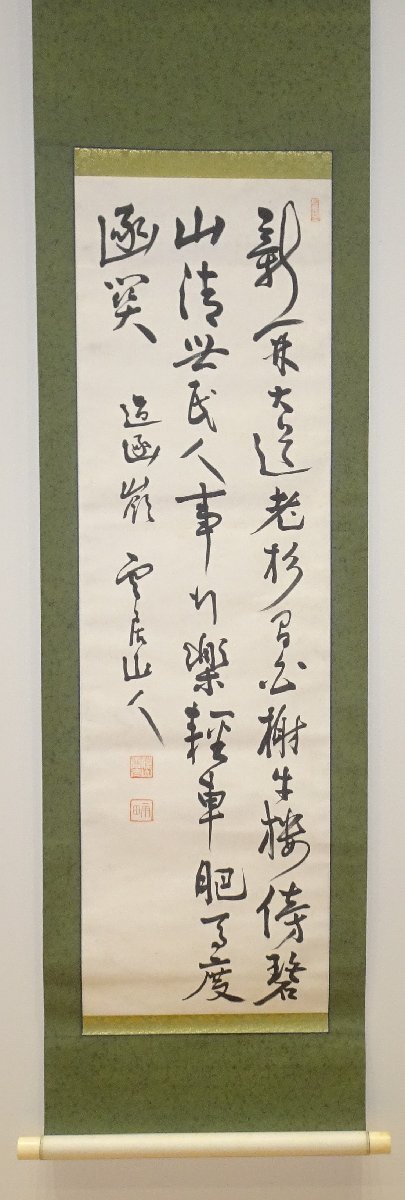 新開大道老杉間白榭朱樓傍碧
山清世民人事行樂輕車肥馬度
函關
過函嶺 雲居山人